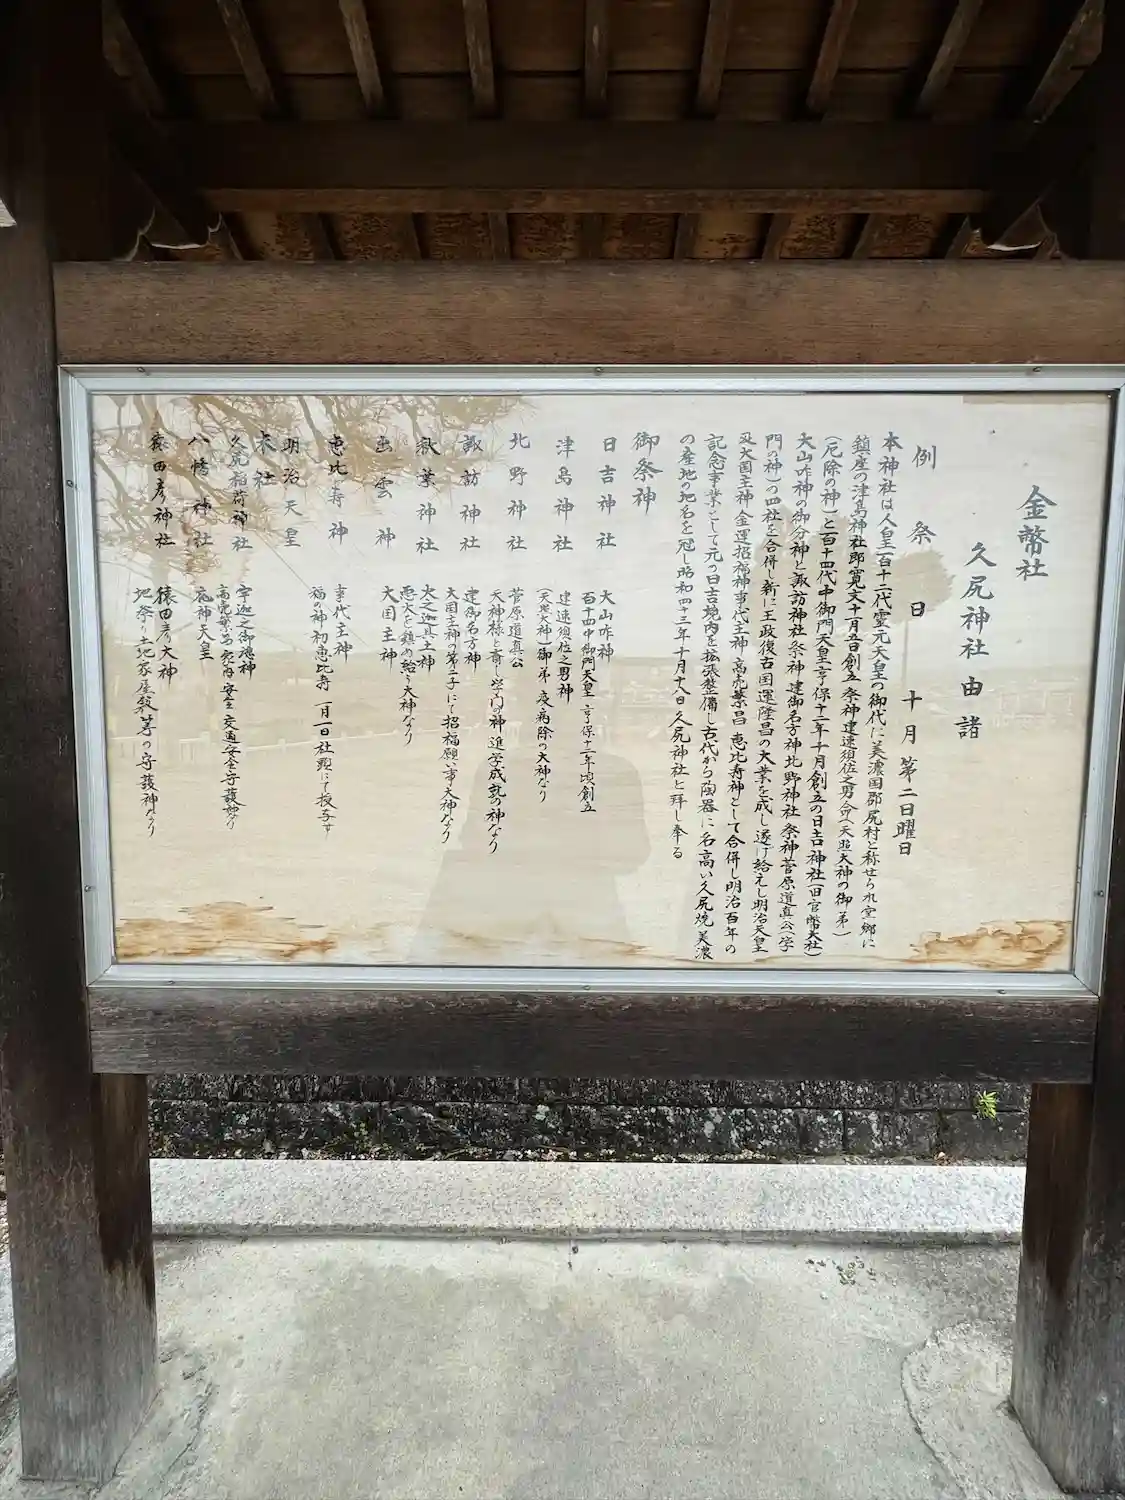 金幣社
久尻神社由諸
例祭日 十月第二日曜日
本神社は人皇百十二代霊元天皇の御代に美濃国郡尻村と称せられ
鎮座の津島神社即寛文十一月吉日創立祭神建速須佐之男命(天照大神の御弟)
(厄除の神)と百十四代中御門天皇亨保十二年十月創立の日吉神社(旧官幣大社)
大山咋神の御分神と諏訪神社祭神建御名方神北野神社祭神菅原道真公(学
門の神)の四社を合併し新に王政復古国運隆昌の大業を成し遂げ給えし明治天皇
及大国主神金運招福神事代主神高売繁昌恵比寿神として合併し明治百年の
記念事業として元の日吉境内を拡張整備し古代から陶器に名高い久尻焼美濃
の産地の地名を冠し昭和四十三年十月十八日久尻神社と拝し奉る
御祭神
日吉神社 大山咋神
百十四中御門天皇亨保十二年頃創立
津島神社 建速須佐之男神
(天照大神の御弟)疫病除の大神なり
北野神社 菅原道真公
天神様と斎し学門の神進学成就の神なり
諏訪神社 建御名方神
大国主神の第二子にて招福願い事大神なり
秋葉神社 火之迦具土神
悪火を鎮め給う大神なり
出雲神 大国主神
恵比寿神 事代主神
福の神初恵比寿一月一日社頭にて授与す
明治天皇
末社
久尻稲荷神 宇迦之御魂神
高売繁昌家内安全交通安全守護神なり
八幡神社 応神天皇
猿田彦神社 猿田彦大神
地祭り土地家屋敷等の守護神なり